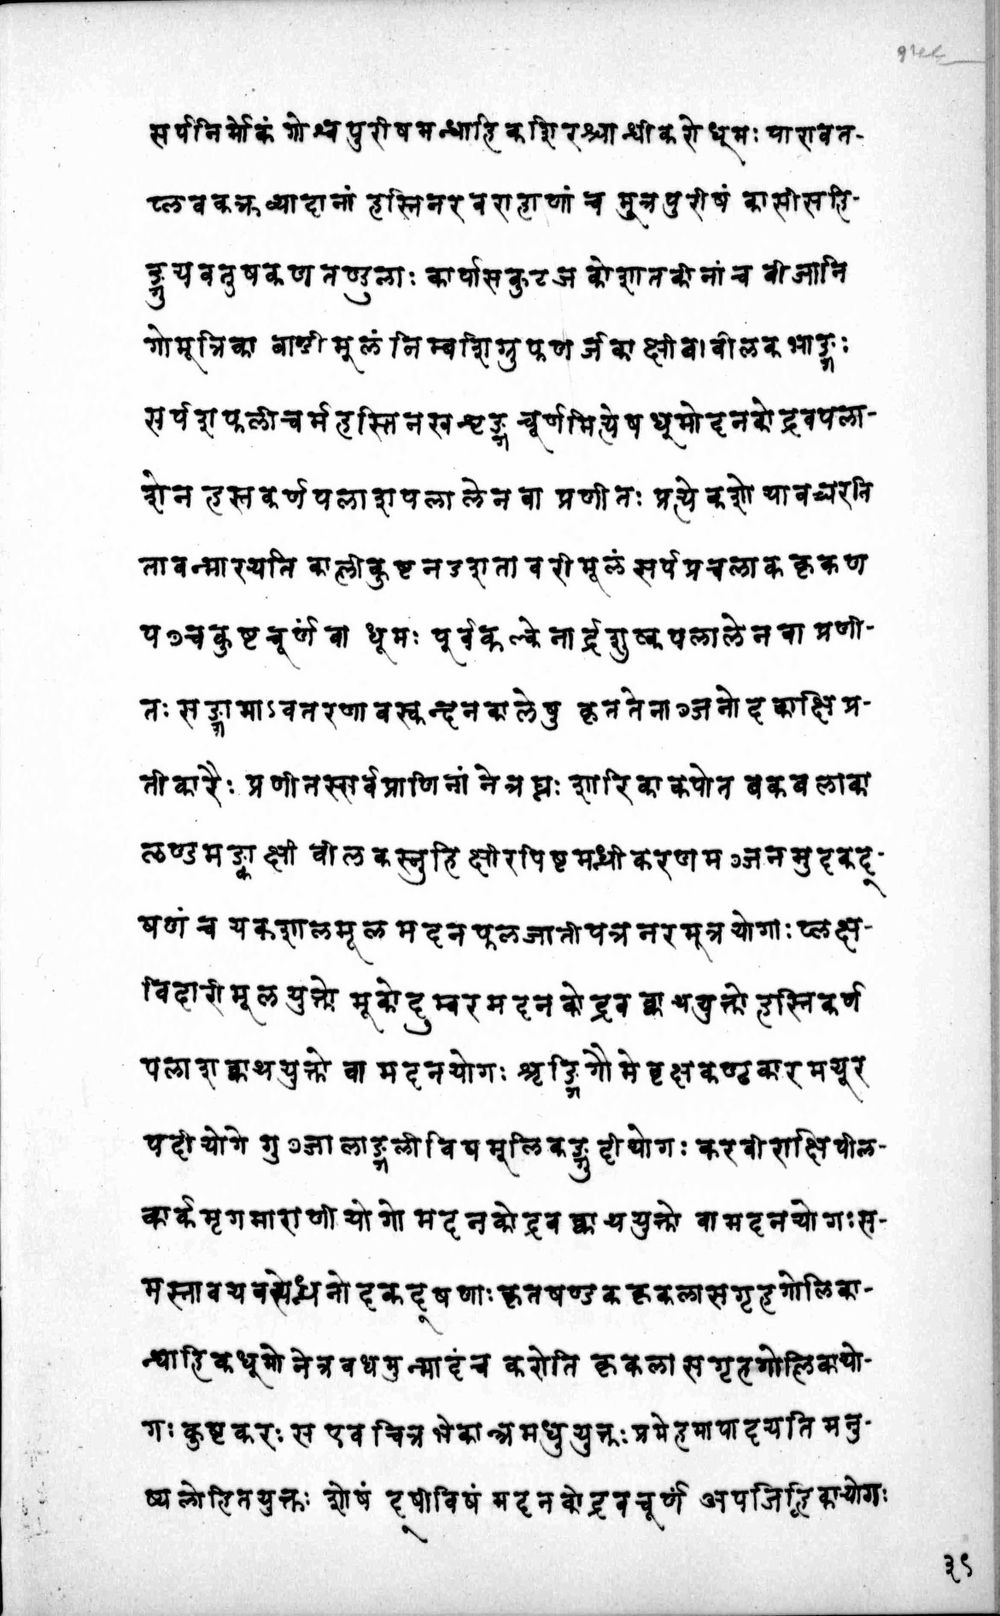 सर्पनिर्मोकं गोश्वपुरीषमन्धाहिकशिरश्चान्धीकरो धूमः पारावत-
प्लवकक्रव्यादानां हस्तिनरवराहाणां च मूत्रपुरीषं कासीसहि-
ङ्गुयवतुषकणतण्डुलाः कार्पासकुटजकोशातकीनां च बीजानि
गोमूत्रिका बाण्डीमूलं निम्बशिग्रुफणर्जकाक्षीबाबीलकभाङ्गः
सर्पशफलीचर्महस्तिनखशृङ्गचूर्णमित्येष धूमोदनकोद्रवपला-
शेन हस्तकर्णपलाशपलालेन वा प्रणीतः प्रत्येकशो यावच्चरति
तावन्मारयति कालीकुष्टनडशतावरीमूलं सर्पप्रचलाककृकण
पञ्चकुष्टचूर्णं वा धूमः पूर्वकल्केनार्द्रशुष्कपलालेन वा प्रणी-
तः सङ्ग्रामाऽवतरणावस्कन्दनकालेषु कृततेनाञ्जनोदकाक्षिप्र-
तीकारैः प्रणीतस्सर्वप्राणिनां नेत्रघ्नः शारिकाकपोतबकबलाका
लण्डमर्ङ्काक्षीवीलकस्नुहिक्षीरपिष्टमन्धीकरणमञ्जनमुदकदू-
षणं च यकशालमूलमदनफलजातीपत्रनरमूत्रयोगाः प्लक्ष-
विदारीमूलयुक्तो मूकोदुम्बरमदनकोद्रवक्वाथयुक्तो हस्तिकर्ण
पलाशक्वाथयुक्तो वा मदनयोगः शृङ्गिगौमेवृक्षकण्ठकारमयूर
पदीयोगे गुञ्जालाङ्गलीविषमूलिकङ्गुदीयोगः करवीराक्षिपील-
कार्कमृगमाराणीयोगो मदनकोद्रवक्वाथयुक्तो वा मदनयोगः स-
मस्तावयवस्येन्धनोदकदूषणाः कृतषण्डककृकलासगृहगोलिका-
न्धाहिकधूमो नेत्रवधमुन्मादं च करोति कृकलासगृहगोलिकायो-
गः कुष्टकरः स एव चित्रभेकान्त्रमधुयुक्तः प्रमेहमापादयति मनु-
ष्यलोहितयुक्तः शोषं दूषीविषं मदनकोद्रवचूर्णं अपजिह्विकायोगः
३९